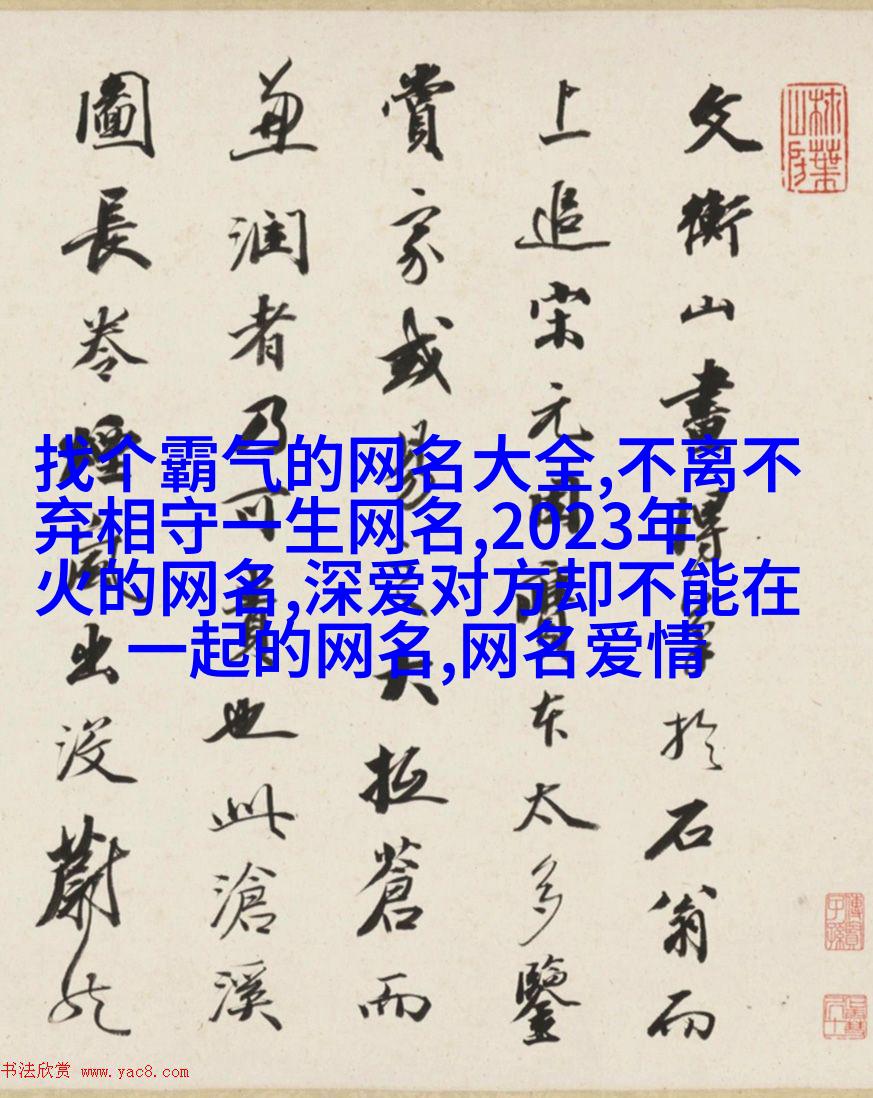 文衡山畫得筆於石翁而
上追宋元因贋本太多鑒
賞家或易之大抵蒼而
兼潤者乃可貴也此滄溪
圖長卷煙嵐出沒蔚然
找个霸气的网名大全,不离不
弃相守一生网名,2023年
火的网名,深爱对方却不能在
一起的网名,网名爱情
书法欣赏 www.yac8.com